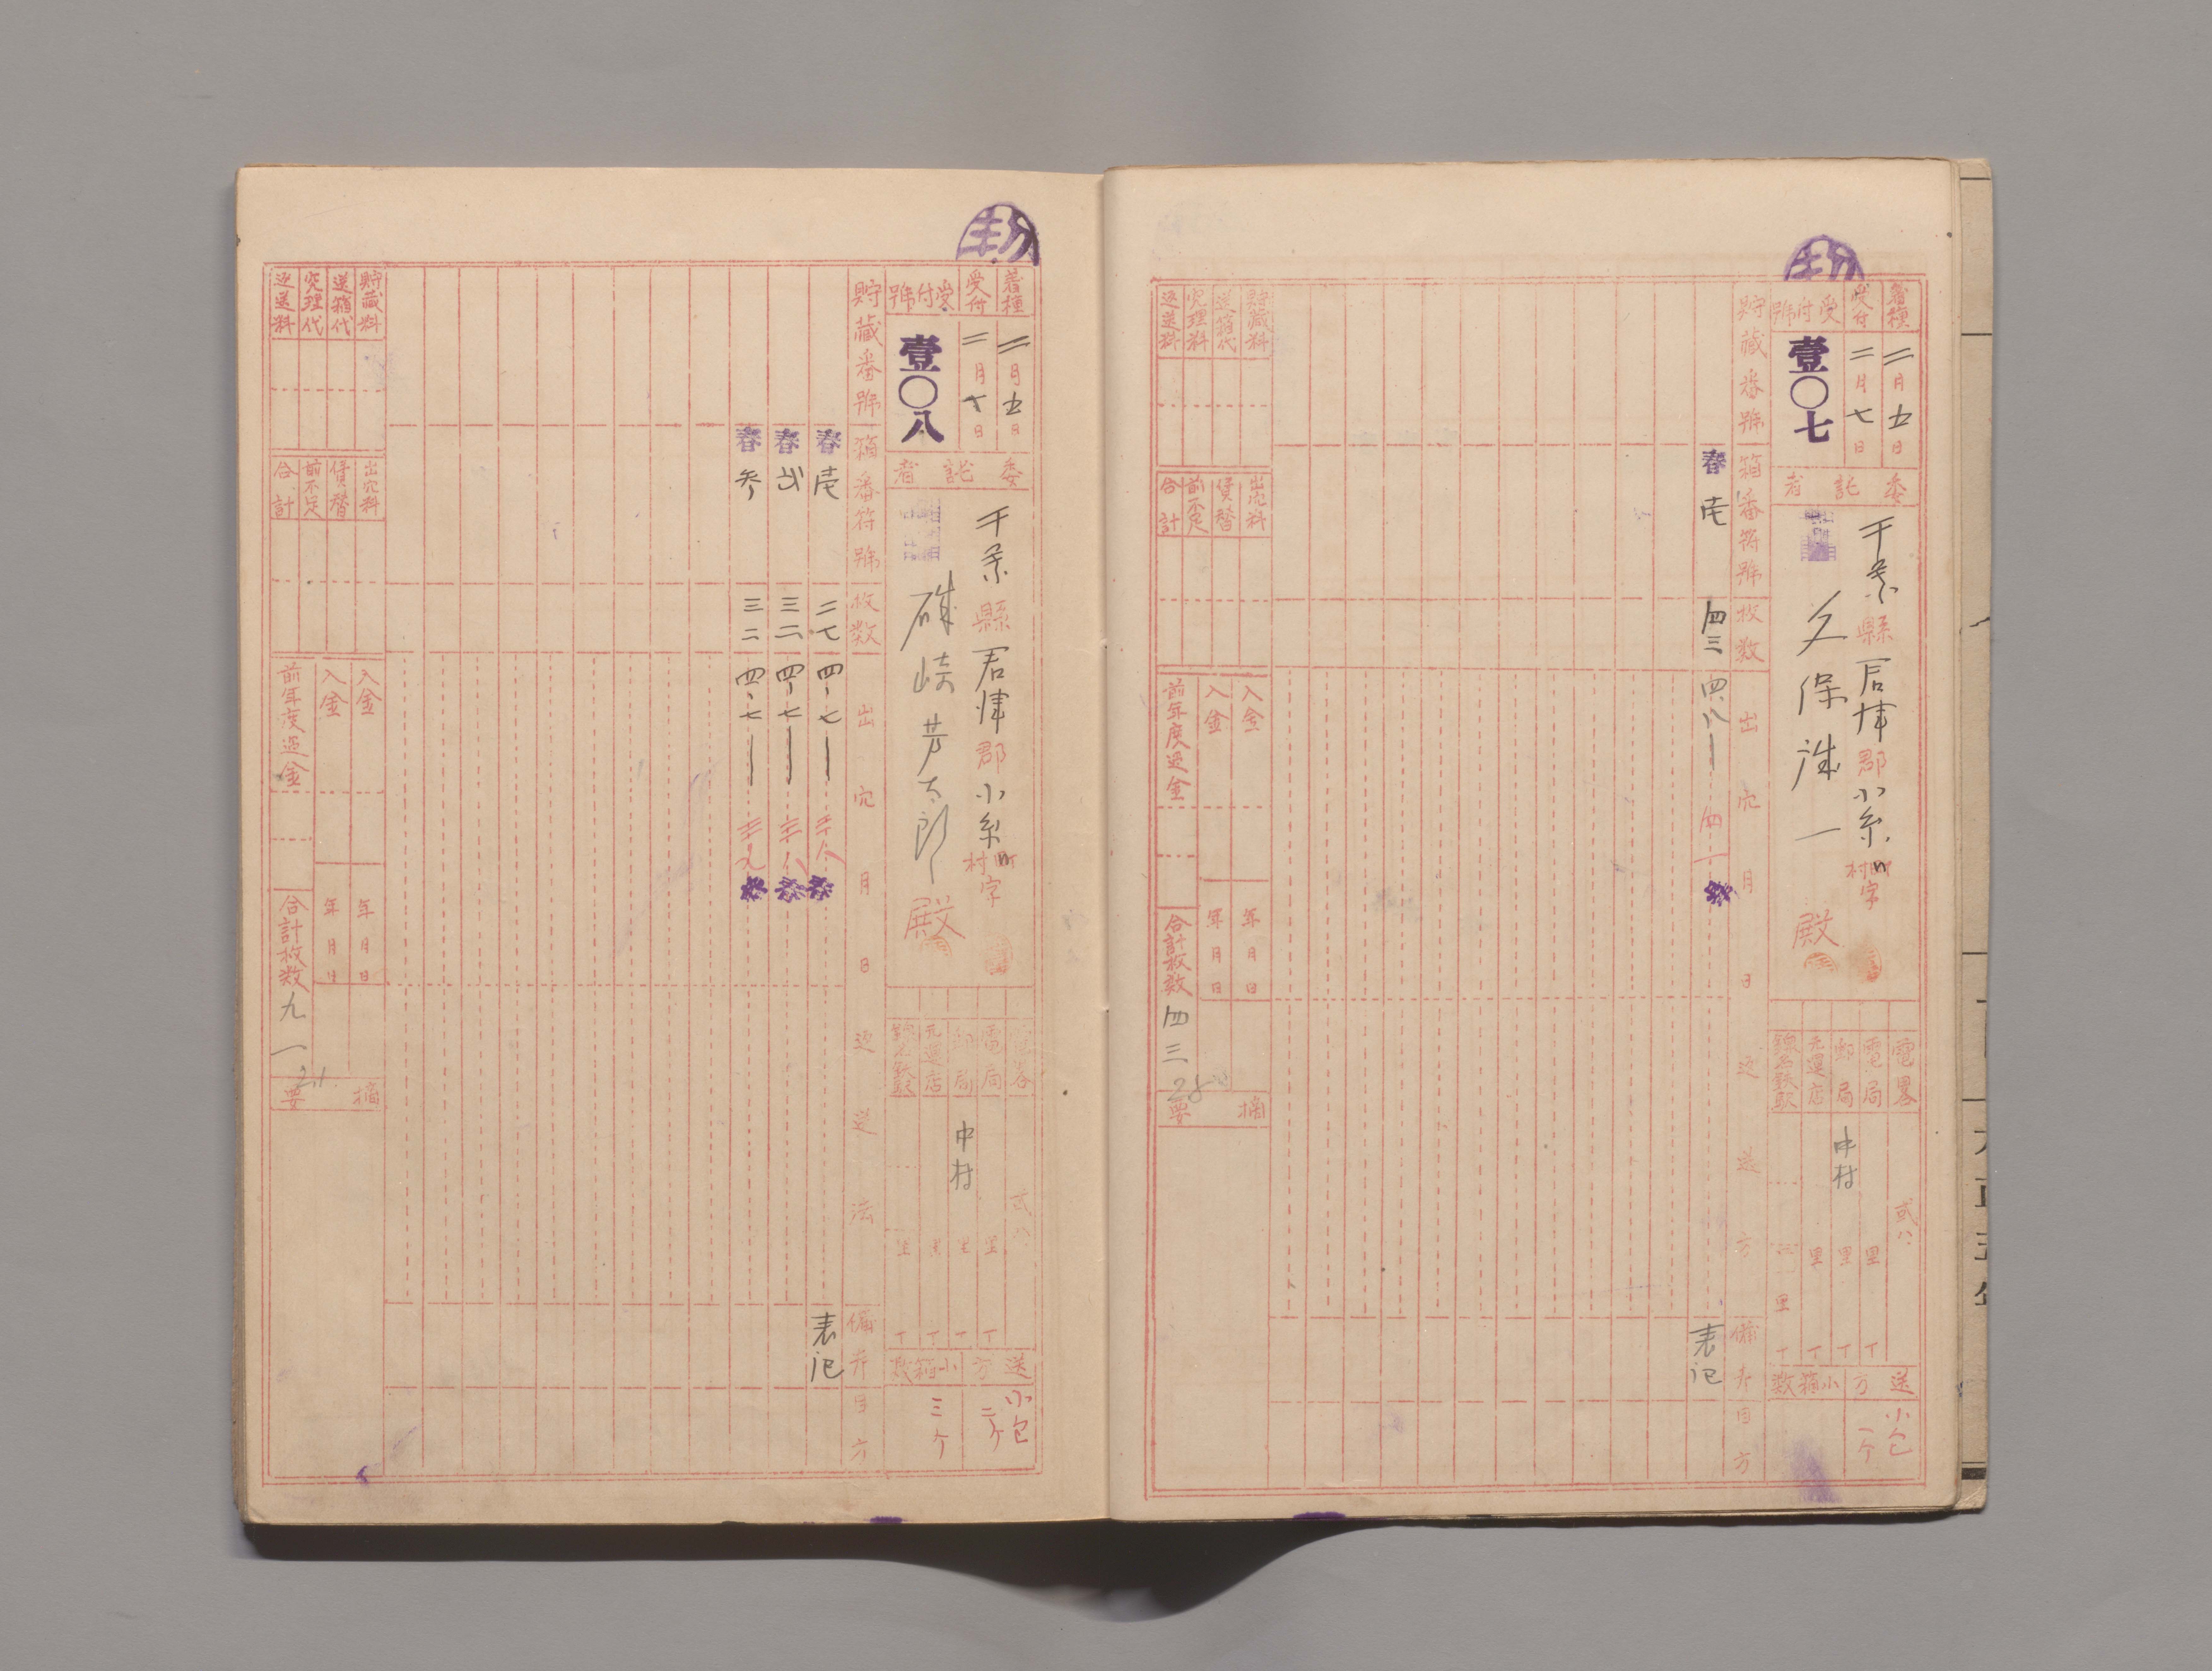 着種
二月五日
受付
二月七日
受付號
壹〇七
委託者
千葉縣君津郡小糸町村字
久保
殿
電畧
貳八
電局
里
丁
郵局
中村
里
丁
元運店
里
丁
里
丁
送方
小包
一ケ
小箱数
貯藏番號
箱番符號
枚数
出穴月日
返送方
備考
目方
春壱
四三
四、八
四
表記
貯藏料
送箱代
究理料
返送料
出穴料
債替
前不足
合計
入金
年月日
入金
年月日
前年度過金
合計枚数
四三
28
摘要
着種
二月五日
受付
二月七日
受付號
壹〇八
委託者
千葉縣君津郡小糸町村字
太郎
殿
電局
里
丁
郵局
中村
里
丁
元運店
里
丁
里
丁
送方
小包
二ケ
小箱数
三ケ
貯藏番號
箱番符號
枚数
出穴月日
返送法
備考
目方
春壱
二七
四、七
表記
春弐
三二
四、七
春参
三二
四、七
貯藏料
送箱代
究理代
返送料
出穴料
債替
前不足
合計
入金
年月日
入金
年月日
前年度過金
合計枚数
九一
摘要